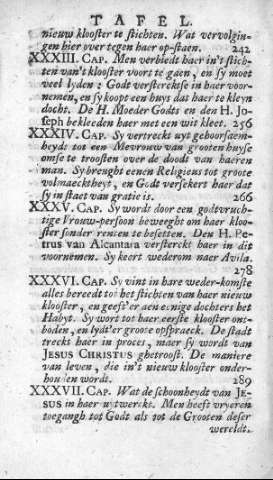 TAFEL.
nieuw klooster te stichten. Wat vervolgin-
gen hier over tegen haer op-staen. 242
XXXIII. CAP. Men verbiedt haer in't stich-
ten van't klooster voort te gaen, en sy moet
veel lyden: Godt versterckse in haer voor-
nemen, en sy koopt een huys dat haer te kleyn
docht. De H. Moeder Godts en den H. Jo-
seph bekleeden haer met een wit kleet. 256
XXXIV. CAP. Sy vertreckt uyt gehoorsaem-
heydt tot een Mevrouw van grooten huyse
omse te troosten over de doodt van haeren
man. Sy brenght eenen Religieus tot groote
volmaecktheyt, en Godt versekert haer dat
sy in staet van gratie is. 266
XXXV. CAP. Sy wordt door een godtvruch-
tige Vrouw-persoon beweeght om haer kloo-
ster sonder renten te besetten. Den H. Pe-
trus van Alcantara versterckt haer in dit
voornemen. Sy keert wederom naer Avila.
278
XXXVI. CAP. Sy vint in hare weder-komste
alles bereedt tot het stichten van haer nieuw
klooster, en geeft'er aen eenige dochters het
Habyt. Sy wort tot haer eerste klooster ont-
boden, en lydt'er groote opspraeck. De stadt
treckt haer in proces, maer sy wordt van
JESUS CHRISTUS ghetroost. De maniere
van leven, die in't nieuw klooster onder-
houden wordt. 289
XXXVII. CAP. Wat de schoonheydt van JE-
SUS in haer uytwerckt. Men heeft vryeren
toegangh tot Godt als tot de Grooten deser
wereldt.